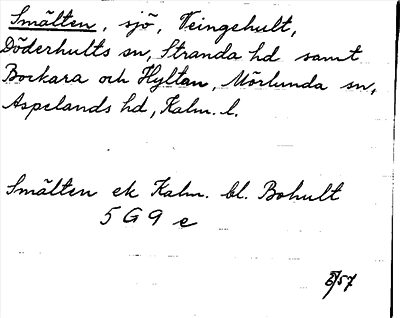 Smälten, sjö, Teingehult,
Döderhults sn, Stranda hd samt
Bockara och Hyltan, Mörlunda sn,
Aspelands hd, Kalm. l.
Smälten ek Kalm. bl. Bohult
5 G 9 e